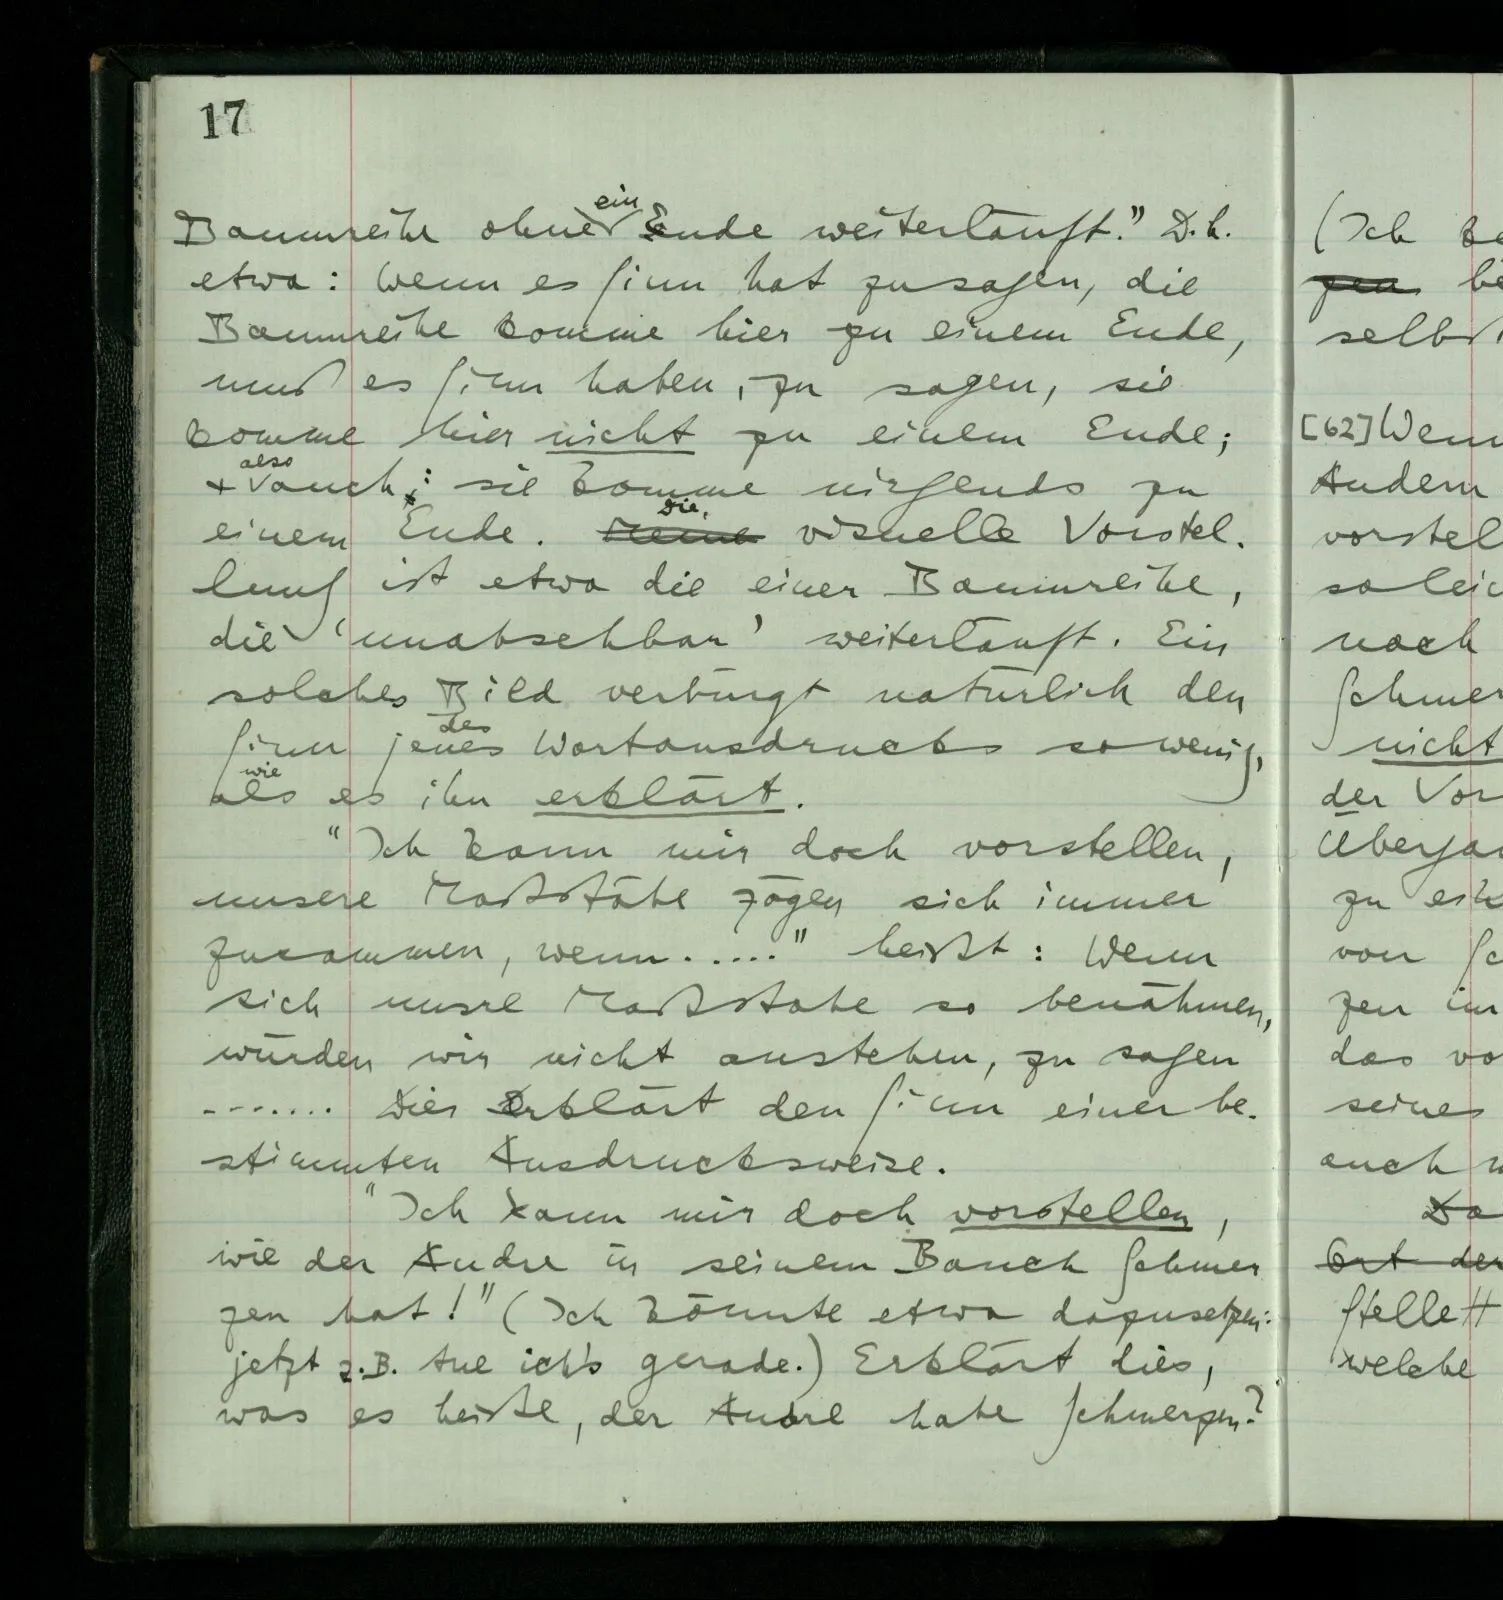 17
Baumreihe ohne ein Ende weiterläuft.” D.h.
etwa: Wenn es Sinn hat zu sagen, die
Baumreihe komme hier zu einem Ende,
muß es Sinn haben, zu sagen, sie
komme hier nicht zu einem Ende;
+ also auch: sie komme nirgends zu
einem Ende. Meine Die visuelle Vorstel-
lung ist etwa die einer Baumreihe,
die ‘unabsehbar’ weiterläuft. Ein
solches Bild verbürgt natürlich den
Sinn jenes des Wortausdrucks so wenig,
als wie es ihn erklärt.
“Ich kann mir doch vorstellen,
unsere Maßstäbe zögen sich immer
zusammen, wenn.....” heißt: Wenn
sich unsre Maßstäbe so benähmen,
würden wir nicht anstehen, zu sagen
....... Dies erklärt den Sinn einer be-
stimmten Ausdrucksweise.
“Ich kann mir doch vorstellen,
wie der Andre in seinem Bauch Schmer
zen hat!” (Ich könnte etwa dazusetzen:
jetzt z.B. tue ich's gerade.) Erklärt dies,
was es heiße, der Andre habe Schmerzen?
(Ich
selbst
[62] Wenn
Andern
vorstel
so leic
noch
Schmer
nicht
der Vor
Überga
zu
von
zen im
das vo
seines
auch
Ort der
Stelle
welche